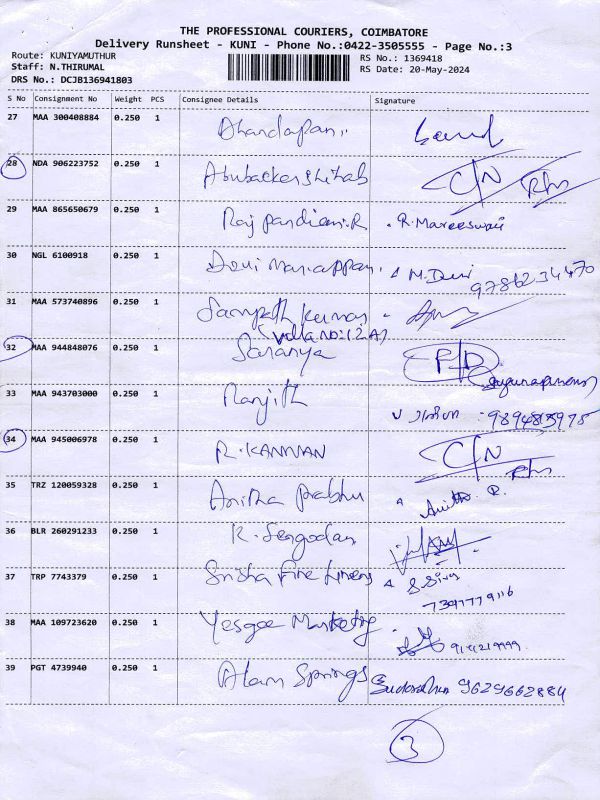 THE PROFESSIONAL COURIERS, COIMBATORE
Delivery Runsheet - KUNI - Phone No.:0422-3505555 - Page No.:3
Route: KUNIYAMUTHUR
Staff: N.THIRUMAL
DRS No.: DCJB136941803
RS No.: 1369418
RS Date: 20-May-2024
S No Consignment No Weight PCS Consignee Details Signature
27 MAA 300408884 0.250 1 Dhandapani
28 NDA 906223752 0.250 1 Abubackershihab C/N
29 MAA 865650679 0.250 1 Raj pandian.R R.Mareeswari
30 NGL 6100918 0.250 1 Devi mariappan M.Devi
9786234470
31 MAA 573740896 0.250 1 Sampath kumar
(villa no: 12A)
32 MAA 944848076 0.250 1 Saranya
33 MAA 943703000 0.250 1 Ranjith
34 MAA 945006978 0.250 1 R.KANNAN C/N
35 TRZ 120059328 0.250 1 Anitha Prabhu
36 BLR 260291233 0.250 1 R.Sengodan
37 TRP 7743379 0.250 1 Srisha Fine Linens
38 MAA 109723620 0.250 1 Yesgee Marketing
39 PGT 4739940 0.250 1 Alam Springs 9629662884
3